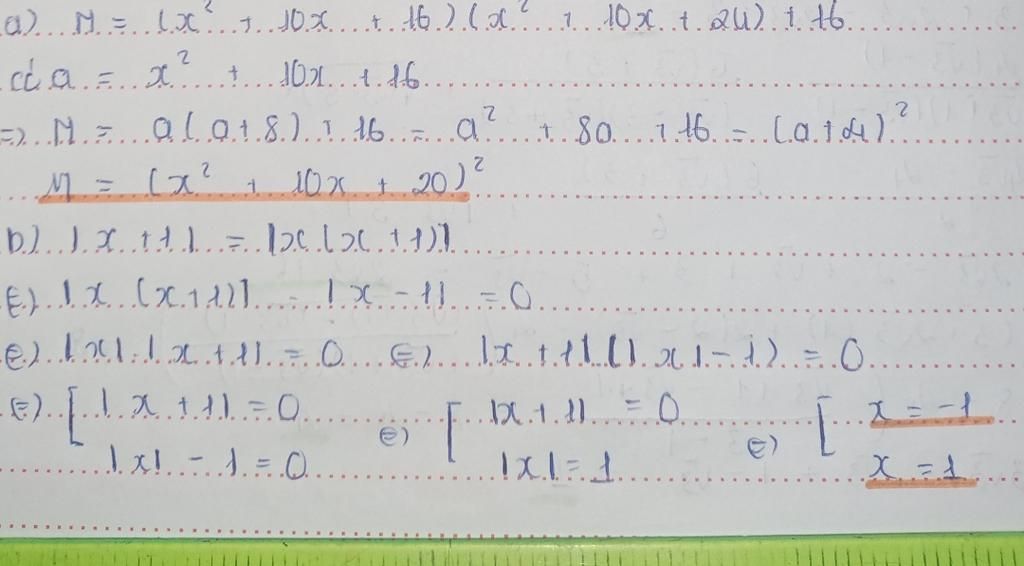 a) M = (x² + 10x + 16)(x² + 10x + 24) + 16
a = x² + 10x + 16
=> M = a(a+8) + 16 = a² + 8a + 16 = (a+4)²
M = (x² + 10x + 20)²
b) |x + 1| = |x(x + 1)|
⇔ |x (x+1)| - |x - 1| = 0
⇔ |x|.|x + 1| = 0 ⇔ |x + 1|.(|x| - 1) = 0
⇔ [ |x + 1| = 0 ⇔ [ |x + 1| = 0 ⇔ [ x = -1
|x| - 1 = 0 |x| = 1 x = 1